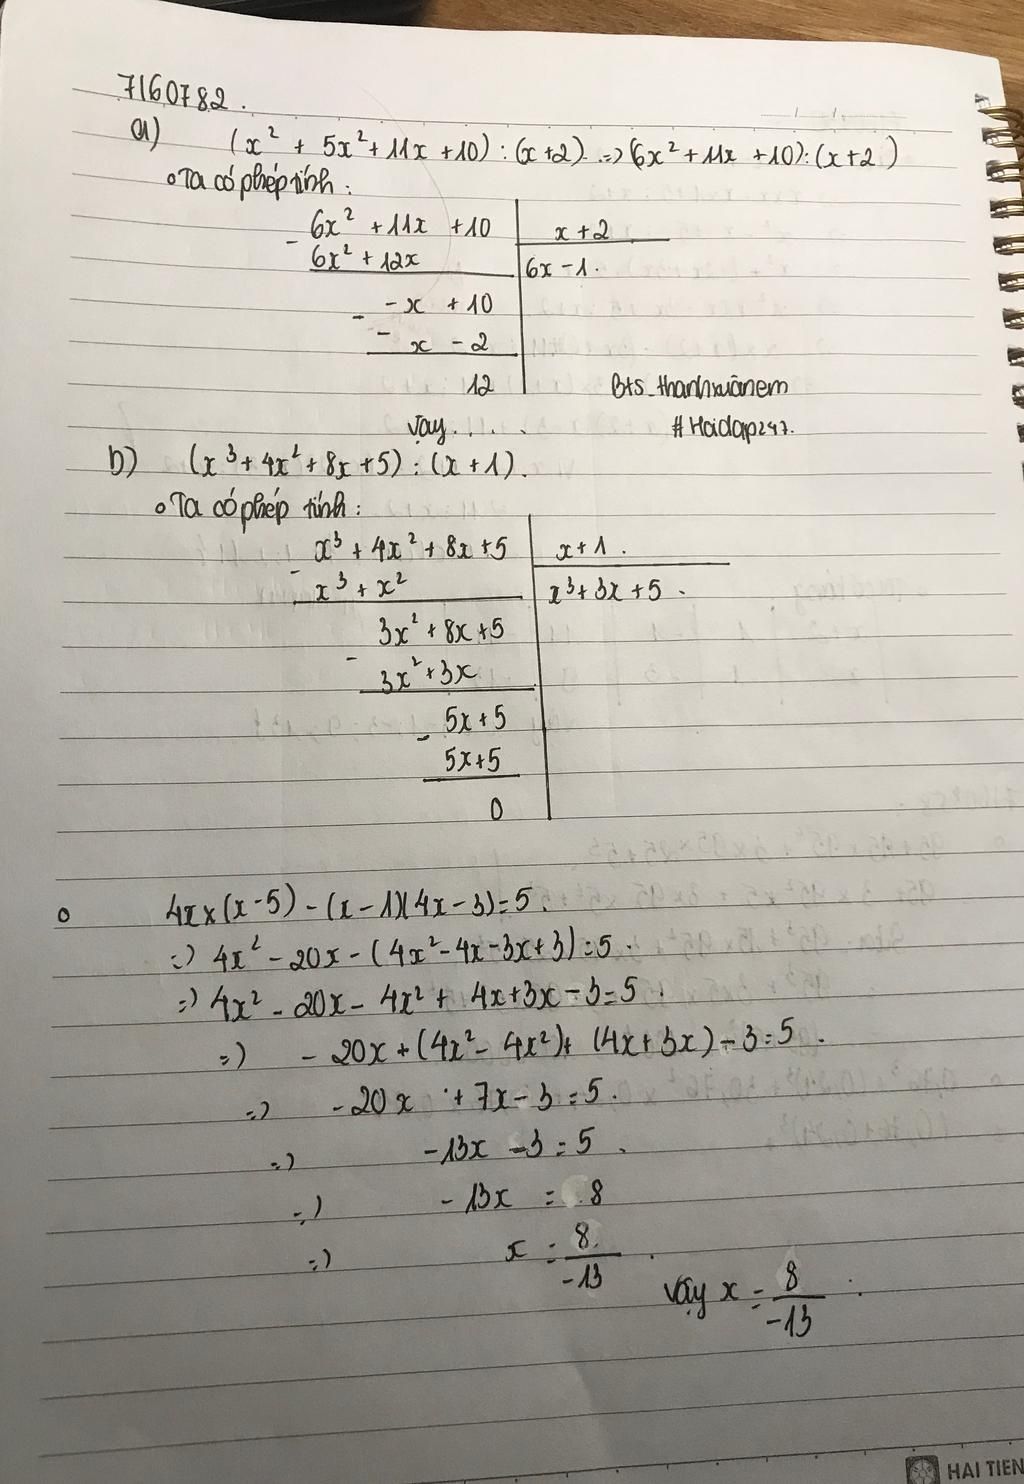 7160782.
a) (x² + 5x² + 11x + 10) : (x+2) => (6x² + 11x + 10) : (x+2)
o Ta có phép tính :
6x² + 11x + 10 | x + 2
- 6x² + 12x | 6x - 1.
-x + 10
- -x - 2
12
Bts_thanhxuânem
Vậy.....
#Hoidap247.
b) (x³ + 4x² + 8x + 5) : (x + 1).
o Ta có phép tính :
x³ + 4x² + 8x + 5 | x + 1.
- x³ + x² | x³ + 3x + 5.
3x² + 8x + 5
- 3x² + 3x
5x + 5
- 5x + 5
0
o 4x × (x - 5) - (x - 1)(4x - 3) = 5.
=> 4x² - 20x - (4x² - 4x - 3x + 3) = 5.
=> 4x² - 20x - 4x² + 4x + 3x - 3 = 5.
=> - 20x + (4x² - 4x²) + (4x + 3x) - 3 = 5.
=> - 20x + 7x - 3 = 5.
=> - 13x - 3 = 5.
=> - 13x = 8
=> x = 8/-13.
Vậy x = 8/-13.
HAI TIEN